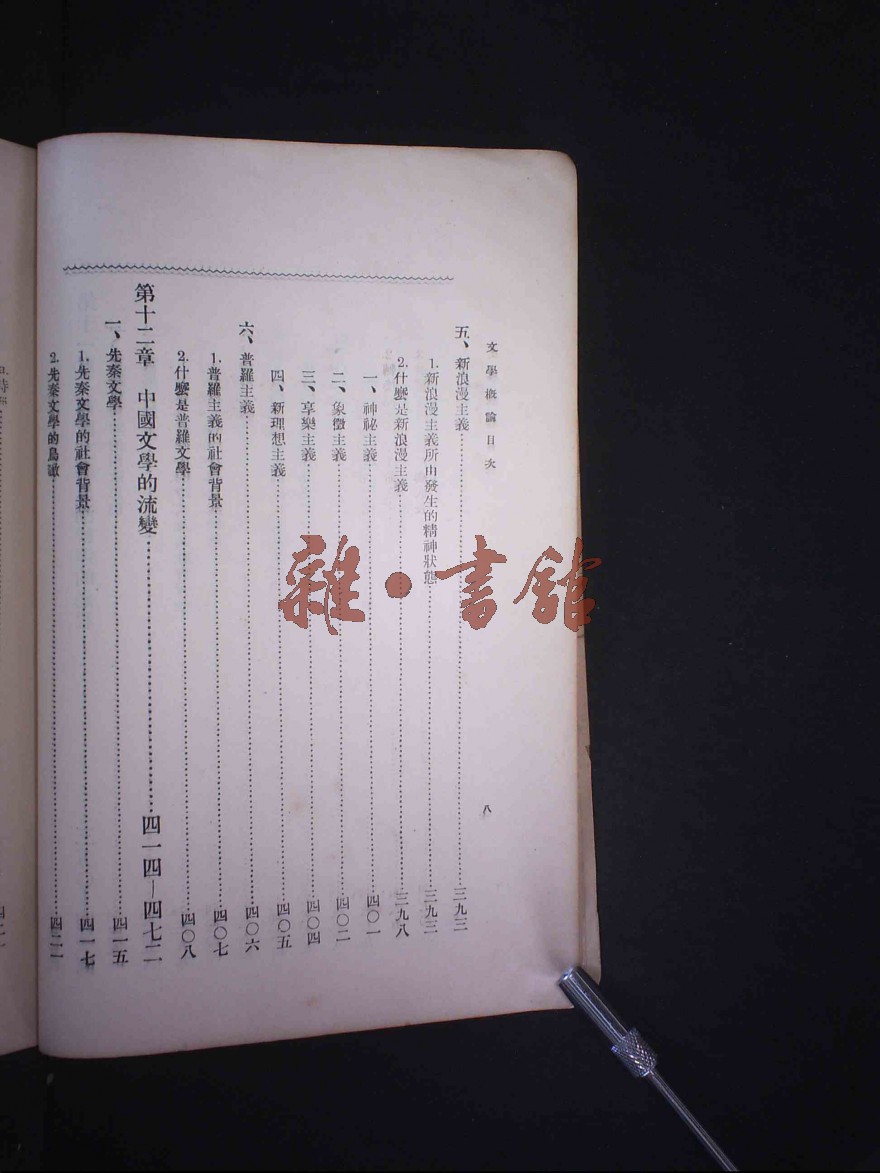 文學概論目次
八
五、新浪漫主義……三九三
1. 新浪漫主義所由發生的精神狀態……三九三
2. 什麼是新浪漫主義……三九八
一、神祕主義……四〇一
二、象徵主義……四〇二
三、享樂主義……四〇四
四、新理想主義……四〇五
六、普羅主義……四〇六
1. 普羅主義的社會背景……四〇七
2. 什麼是普羅文學……四〇八
第十二章 中國文學的流變……四一四—四七二
一、先秦文學……四一五
1. 先秦文學的社會背景……四一七
2. 先秦文學的鳥瞰……四二二
雜·書館